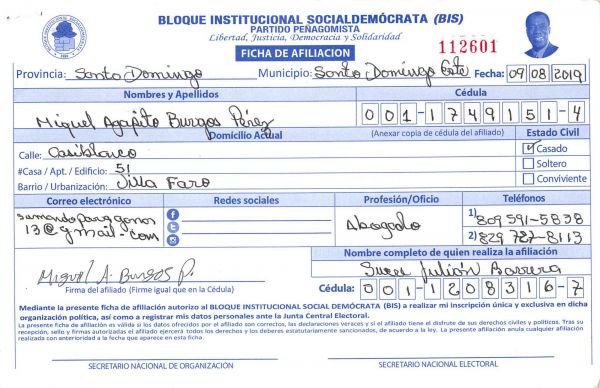 BLOQUE INSTITUCIONAL SOCIALDEMÓCRATA (BIS)
PARTIDO PEÑAGOMISTA
Libertad, Justicia, Democracia y Solidaridad
FICHA DE AFILIACION
112601
Provincia: Santo Domingo Municipio: Santo Domingo Este Fecha: 09 08 2019
Nombres y Apellidos Cédula
Miguel Agapito Burgos Pérez 001-1749151-4
Domicilio Actual (Anexar copia de cédula del afiliado) Estado Civil
Calle: Casiblanco Casado
#Casa / Apt. / Edificio: 51 Soltero
Barrio / Urbanización: Villa Faro Conviviente
Correo electrónico Redes sociales Profesión/Oficio Teléfonos
sumandoparaganar Abogado 1) 809 591-5838
13@gmail.com 2) 829 787-8113
Nombre completo de quien realiza la afiliación
Miguel A. Burgos P. Sucre Julián Barrera
Firma del afiliado (Firme igual que en la Cédula) Cédula: 001-1208316-7
Mediante la presente ficha de afiliación autorizo al BLOQUE INSTITUCIONAL SOCIAL DEMÓCRATA (BIS) a realizar mi inscripción única y exclusiva en dicha
organización política, así como a registrar mis datos personales ante la Junta Central Electoral.
La presente ficha de afiliación es válida si los datos ofrecidos por el afiliado son correctos, las declaraciones veraces y si el afiliado tiene el disfrute de sus derechos civiles y políticos. Tras su
recepción, sello y firmas autorizadas el afiliado ejercerá todos los derechos y los deberes estatutariamente sancionados, de acuerdo a la ley. La presente afiliación anula cualquier afiliación
realizada con anterioridad a la fecha que aparece en esta ficha.
SECRETARIO NACIONAL DE ORGANIZACIÓN SECRETARIO NACIONAL ELECTORAL